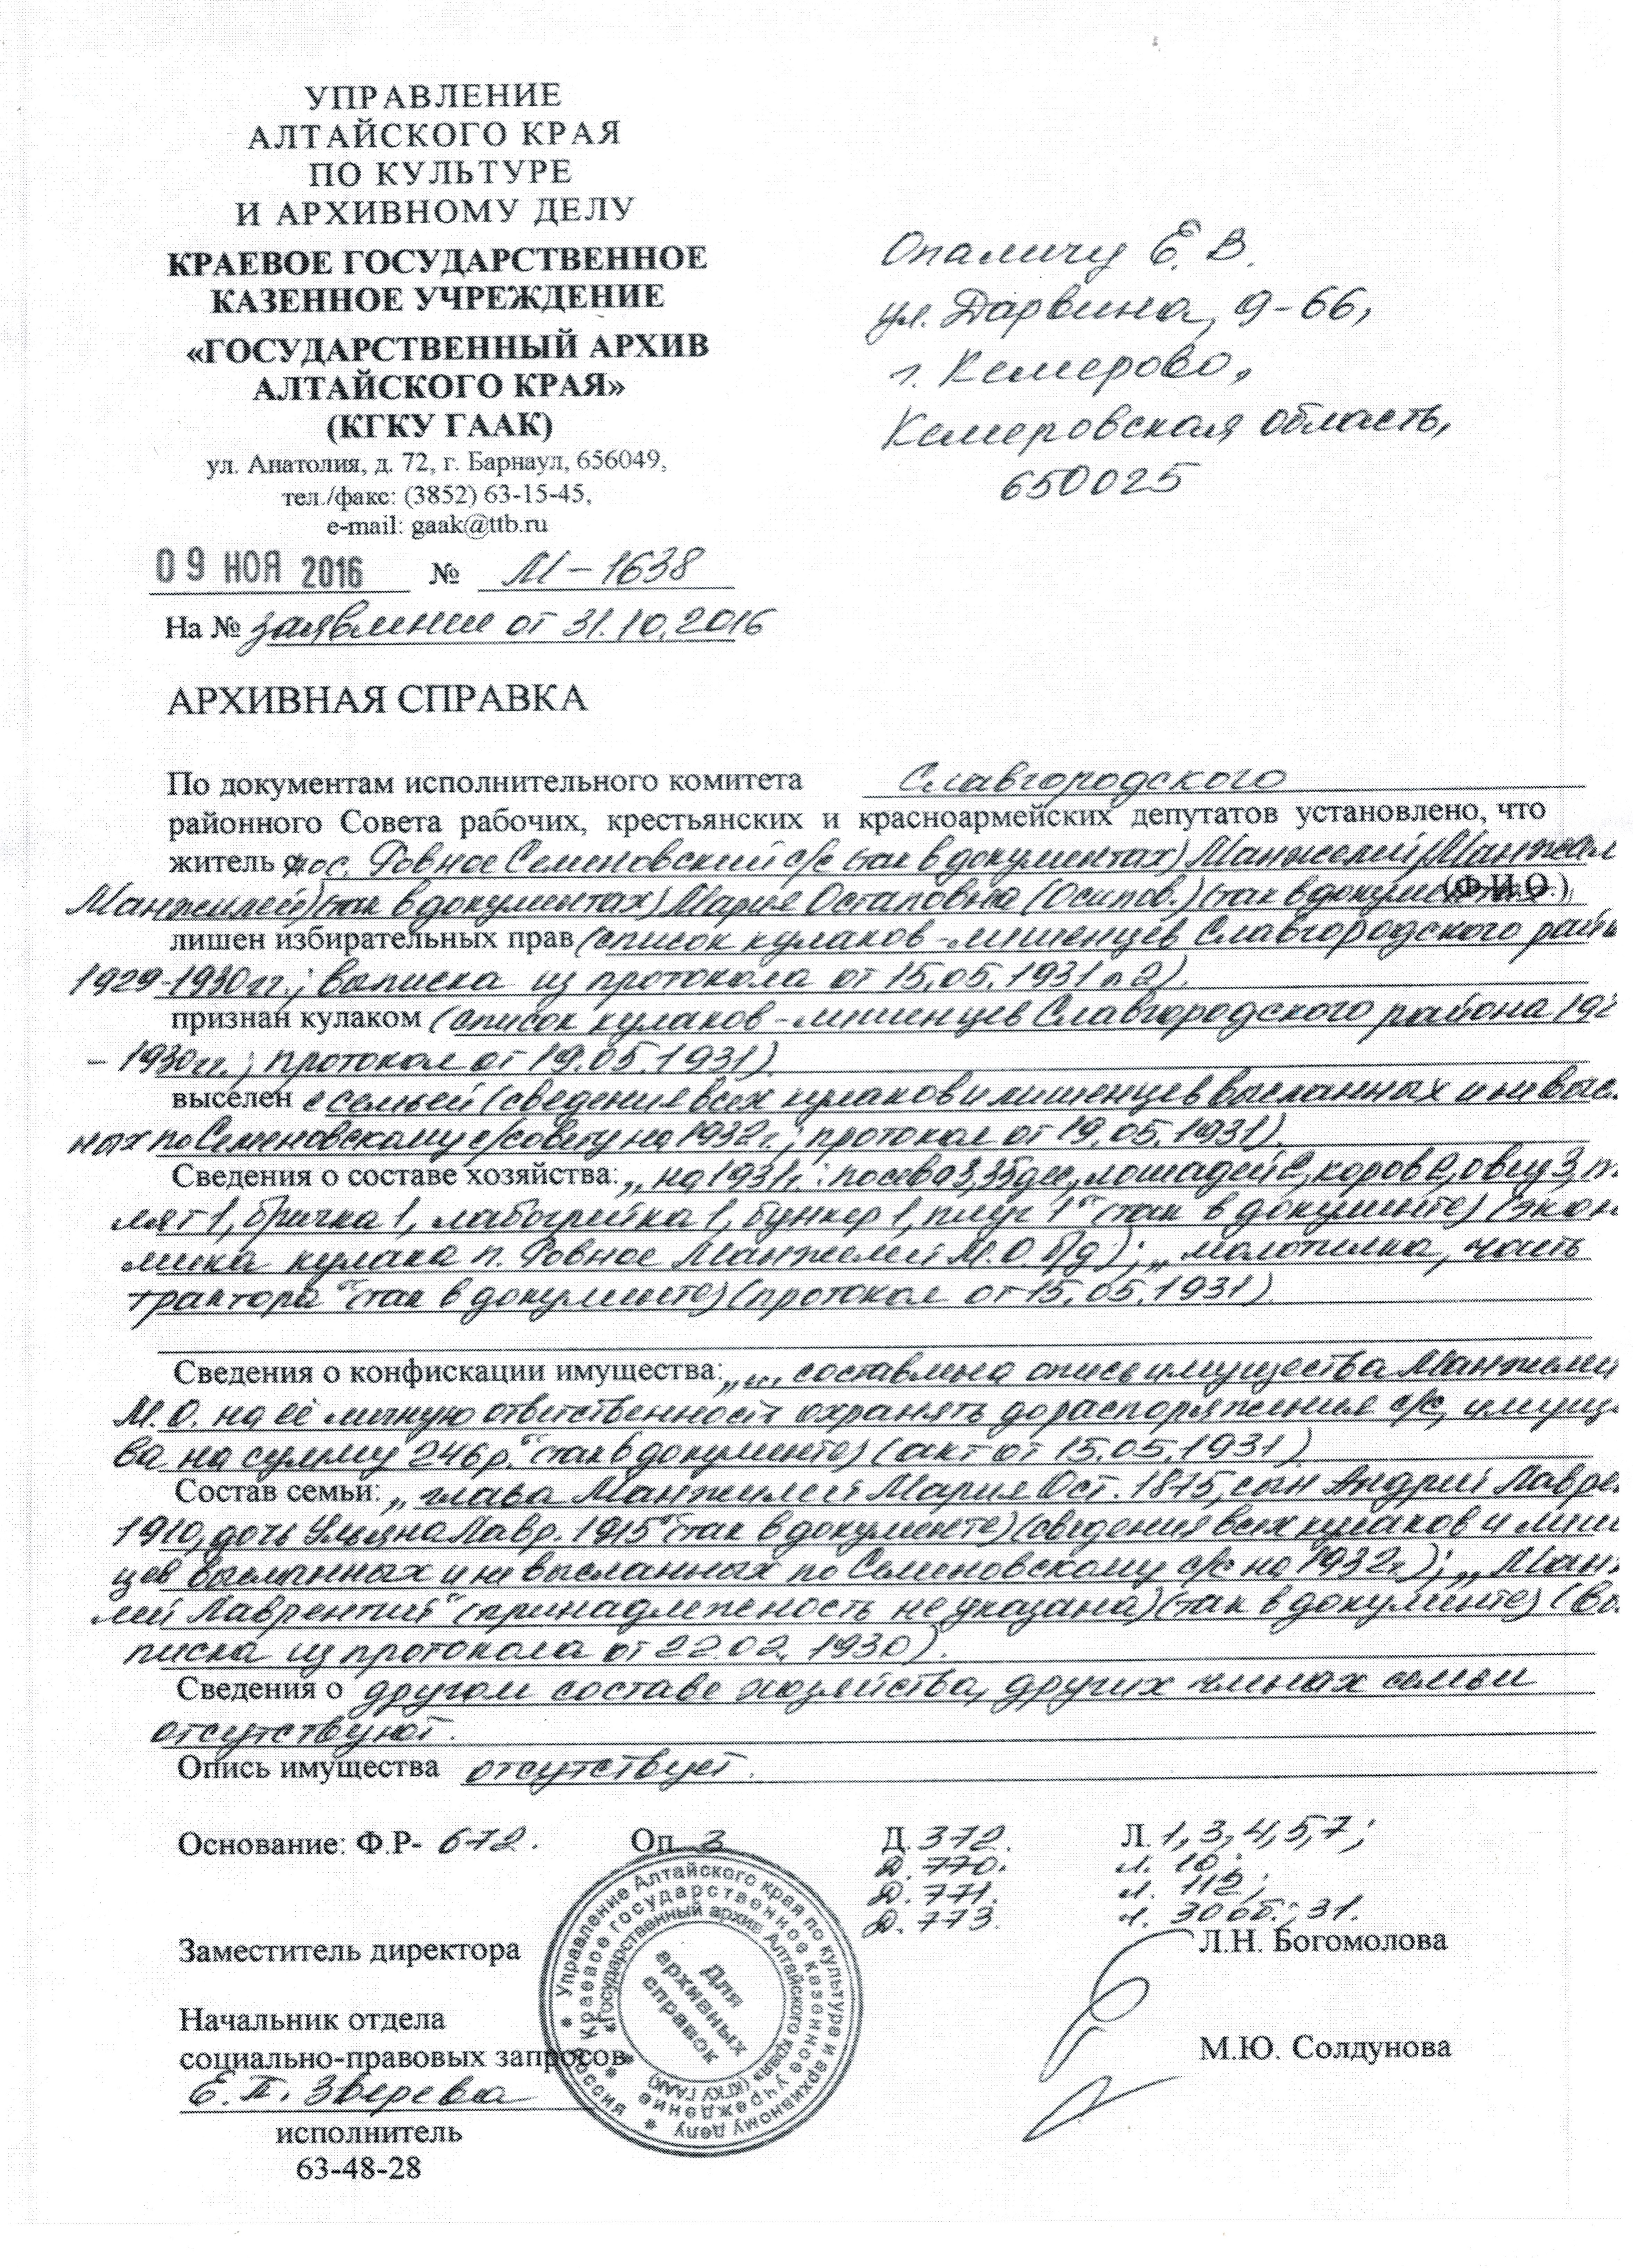 УПРАВЛЕНИЕ
АЛТАЙСКОГО КРАЯ
ПО КУЛЬТУРЕ
И АРХИВНОМУ ДЕЛУ
КРАЕВОЕ ГОСУДАРСТВЕННОЕ
КАЗЕННОЕ УЧРЕЖДЕНИЕ
«ГОСУДАРСТВЕННЫЙ АРХИВ
АЛТАЙСКОГО КРАЯ»
(КГКУ ГААК)
ул. Анатолия, д. 72, г. Барнаул, 656049,
тел./факс: (3852) 63-15-45,
e-mail: gaak@ttb.ru
09 НОЯ 2016 № М-1638
На № заявление от 31.10.2016
Опаличу Е. В.
ул. Дарвина, 9-66,
г. Кемерово,
Кемеровская область,
650025
АРХИВНАЯ СПРАВКА
По документам исполнительного комитета Славгородского
районного Совета рабочих, крестьянских и красноармейских депутатов установлено, что
житель пос. Ровное Семеновский с/с (так в документах) Манжелей (Манжал
Манжилей) (так в документах) Мария Остаповна (Осипов.) (так в документах)
(Ф.И.О.)
лишен избирательных прав (список кулаков-лишенцев Славгородского рай
1929-1930 гг.; выписка из протокола от 15.05.1931 п 2).
признан кулаком (список кулаков-лишенцев Славгородского района 192
– 1930 гг.; протокол от 19.05.1931)
выселен с семьей (сведения всех кулаков и лишенцев высланных и не высл
ных по Семеновскому с/совету на 1932 г.; протокол от 19.05.1931).
Сведения о составе хозяйства: „на 1931 г.: посева 3,35 дес, лошадей 2, коров 2, овец 3, т
лят 1, бричка 1, лабогрейка 1, бункер 1, плуг 1“ (так в документе) (экон
мика кулака п. Ровное Манжелей М.О. б/д); „молотилка, часть
трактора“ (так в документе) (протокол от 15.05.1931).
Сведения о конфискации имущества: „... составлена опись имущества Манжели
М.О. на её личную ответственность охранять до распоряжения с/с, имуще
ва на сумму 246 р.“ (так в документе) (акт от 15.05.1931)
Состав семьи: „глава Манжилей Мария Ост. 1875, сын Андрей Лавре
1910, дочь Ульяна Лавр. 1915“ (так в документе) (сведения всех кулаков и лише
цев высланных и не высланных по Семеновскому с/с на 1932 г.); „Манж
лей Лаврентий“ (принадлежность не указана) (так в документе) (вы
писка из протокола от 22.02.1930).
Сведения о другом составе хозяйства, других членах семьи
отсутствуют.
Опись имущества отсутствует.
Основание: Ф.Р- 672. Оп. 3 Д. 372. Л. 1, 3, 4, 5, 7;
Д. 770. л. 10;
Д. 771. л. 112;
Д. 773. л. 30об.; 31.
Заместитель директора Л.Н. Богомолова
Начальник отдела
социально-правовых запросов М.Ю. Солдунова
Е.П. Зверева
исполнитель
63-48-28
Управление Алтайского края по культуре и архивному делу * Россия *
Краевое государственное казенное учреждение
«Государственный архив Алтайского края» (КГКУ ГААК)
Для
архивных
справок